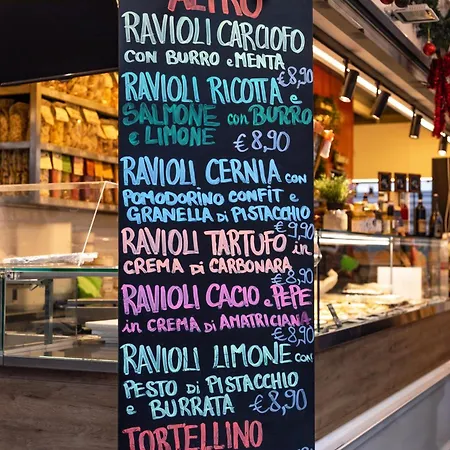 ALTRO
RAVIOLI CARCIOFO
CON BURRO e MENTA
€8,90
RAVIOLI RICOTTA e
SALMONE con BURRO
e LIMONE €8,90
RAVIOLI CERNIA con
POMODORINO CONFIT e
GRANELLA di PISTACCHIO
€9,90
RAVIOLI TARTUFO in
CREMA di CARBONARA
€8,90
RAVIOLI CACIO e PEPE
in CREMA di AMATRICIANA
€8,90
RAVIOLI LIMONE con
PESTO di PISTACCHIO
e BURRATA €8,90
TORTELLINO